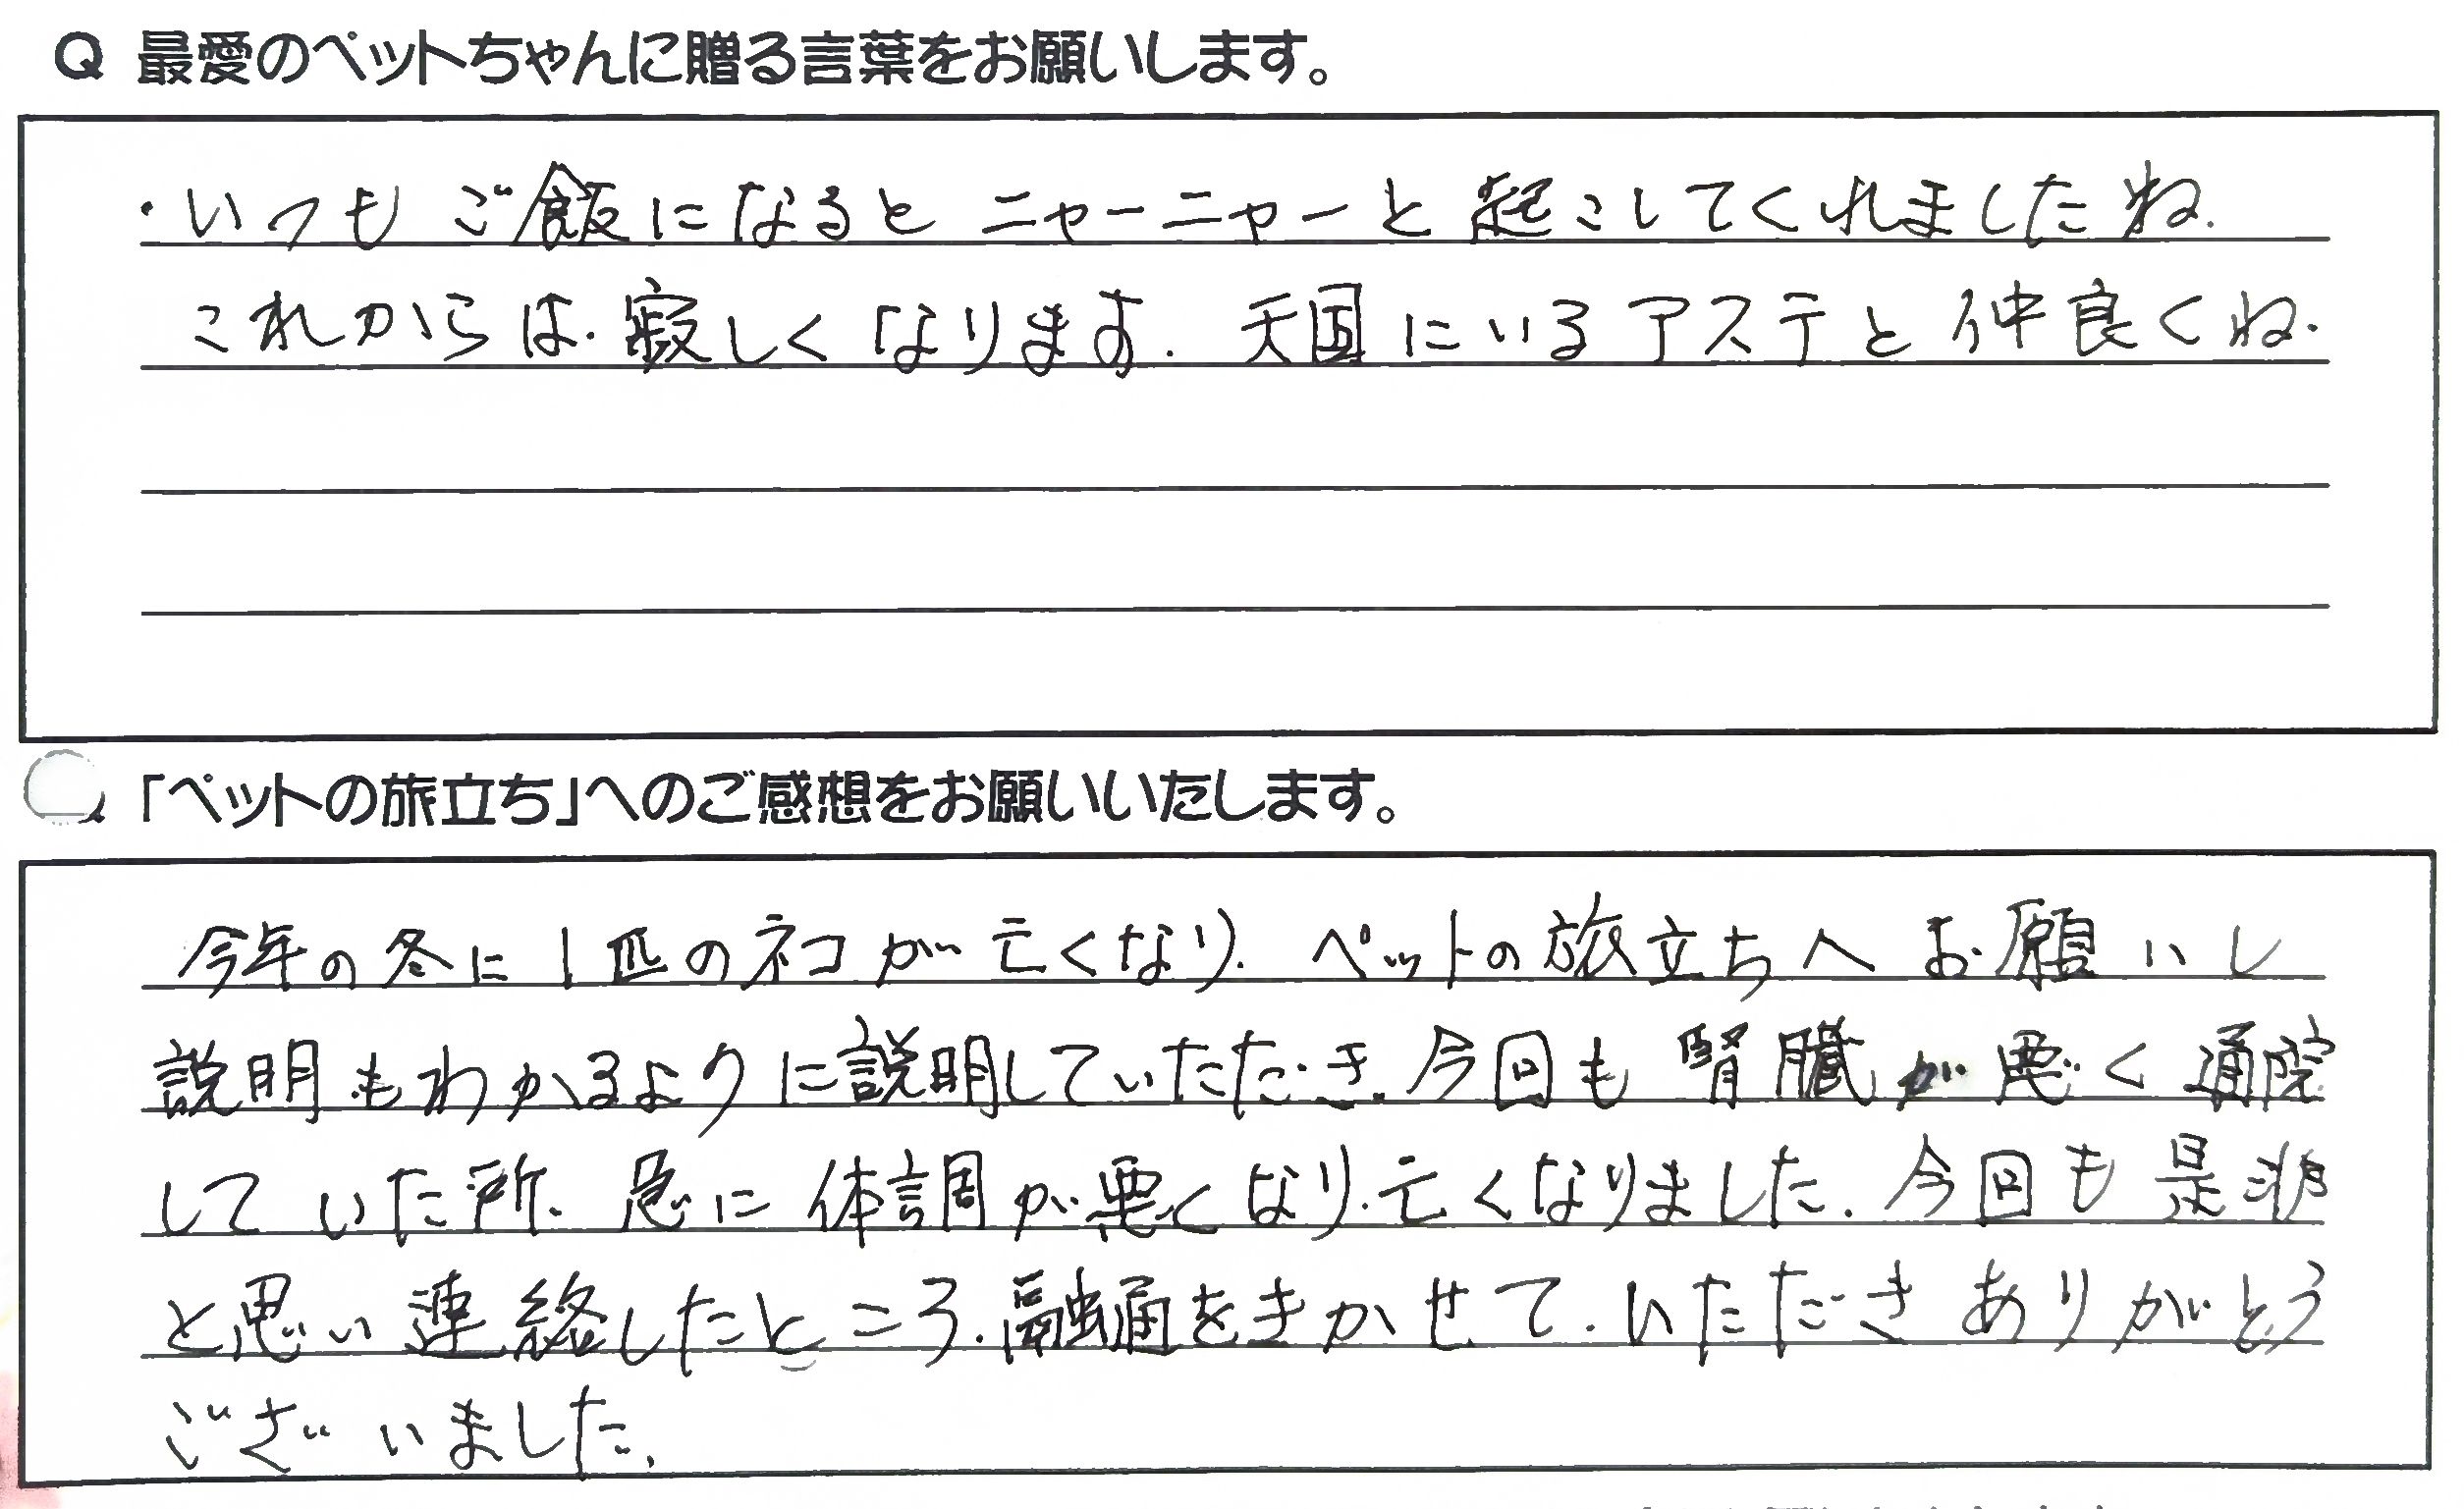 Q 最愛のペットちゃんに贈る言葉をお願いします。
・いつもご飯になるとニャーニャーと起こしてくれましたね.
これからは.寂しくなります.天国にいるアステと仲良くね.
「ペットの旅立ち」へのご感想をお願いいたします。
今年の冬に1匹のネコが亡くなり.ペットの旅立ちへお願いし
説明もわかるように説明していただき.今回も腎臓が悪く通院
していた所.急に体調が悪くなり.亡くなりました.今回も是非
と思い連絡したところ.融通をきかせて.いただきありがとう
ございました.